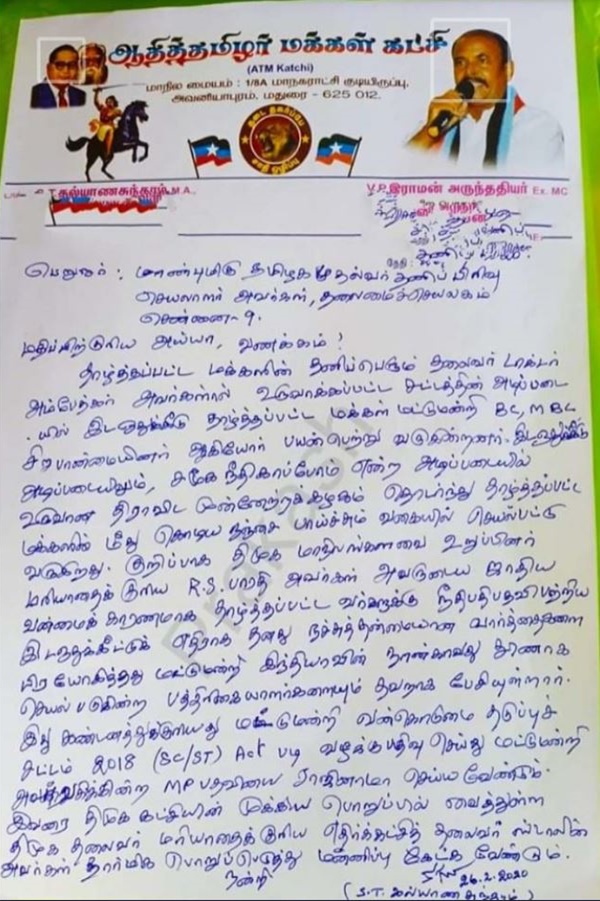 ஆதித்தமிழர் மக்கள் கட்சி
(ATM Katchi)
மாநில மையம் : 1/8A மாநகராட்சி குடியிருப்பு,
அவனியாபுரம், மதுரை - 625 012.
S.T.கல்யாணசுந்தரம் M.A.,
V.P.இராமன் அருந்ததியர் Ex. MC
தேதி :
பெறுநர் : மாண்புமிகு தமிழக முதல்வர் தனிப் பிரிவு
செயலாளர் அவர்கள், தலைமைச்செயலகம்
சென்னை-9.
மதிப்பிற்குரிய அய்யா, வணக்கம்!
தாழ்த்தப்பட்ட மக்களின் தனிப்பெரும் தலைவர் டாக்டர்
அம்பேத்கர் அவர்களால் உருவாக்கப்பட்ட சட்டத்தின் அடிப்படை
யில் இடஒதுக்கீடு தாழ்த்தப்பட்ட மக்கள் மட்டுமன்றி BC, MBC
சிறுபான்மையினர் ஆகியோர் பயன்பெற்று வருகின்றனர். இடஒதுக்கீடு
அடிப்படையிலும், சமூகநீதிகாப்போம் என்ற அடிப்படையில்
உருவான திராவிட முன்னேற்றக்கழகம் தொடர்ந்து தாழ்த்தப்பட்ட
மக்களின் மீது கொடிய நஞ்சை பாய்ச்சும் வகையில் செயல்பட்டு
வருகிறது. குறிப்பாக திமுக மாநிலங்களவை உறுப்பினர்
மரியாதைக்குரிய R.S. பாரதி அவர்கள் அவருடைய ஜாதிய
வன்மைக் காரணமாக தாழ்த்தப்பட்ட வர்களுக்கு நீதிபதிபதவிபற்றிய
இடஒதுக்கீட்டுக் எதிராக தனது நச்சுத்தன்மையான வார்த்தைகளை
பிரயோகித்தது மட்டுமன்றி இந்தியாவின் நான்காவது தூணாக
செயல் படுகின்ற பத்திரிகையாளர்களையும் தவறாக பேசியுள்ளார்.
இது கண்டனத்துக்குரியது மட்டுமன்றி வன்கொடுமை தடுப்புச்
சட்டம் 2018 (SC/ST) Act படி வழக்குபதிவு செய்து மட்டுமன்றி
MP பதவியை ராஜினாமா செய்ய வேண்டும்.
இவரை திமுக கட்சியின் முக்கிய பொறுப்பில் வைத்துள்ள
திமுக தலைவர் மரியாதைக்குரிய எதிர்க்கட்சித் தலைவர் ஸ்டாலின்
அவர்கள் தார்மிக பொறுப்பெடுத்து மன்னிப்பு கேட்க வேண்டும்.
நன்றி
26.2.2020
(S.T. கல்யாணசுந்தரம்)
Prakash